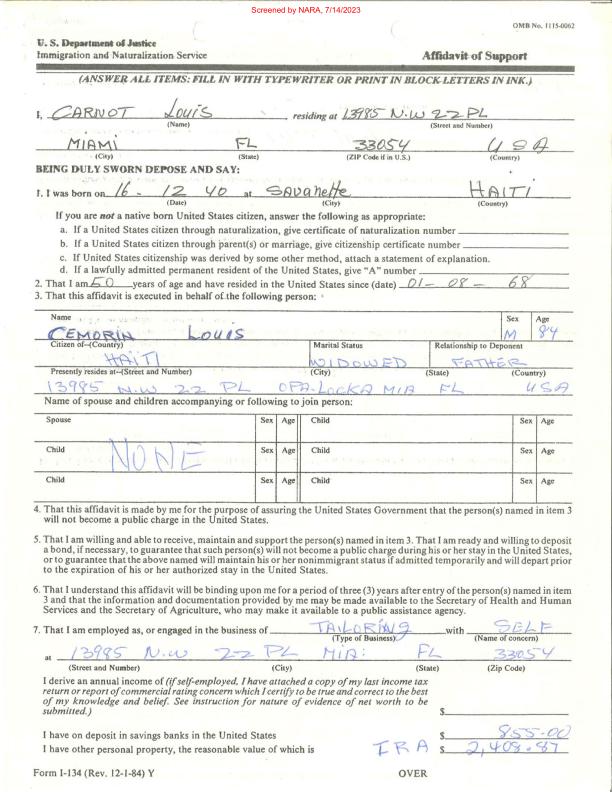 Screened by NARA, 7/14/2023
OMB No. 1115-0062
U. S. Department of Justice
Immigration and Naturalization Service Affidavit of Support
(ANSWER ALL ITEMS: FILL IN WITH TYPEWRITER OR PRINT IN BLOCK LETTERS IN INK.)
I, CARNOT LOUIS residing at 13985 N.W 22 PL
(Name) (Street and Number)
MIAMI FL 33054 USA
(City) (State) (ZIP Code if in U.S.) (Country)
BEING DULY SWORN DEPOSE AND SAY:
1. I was born on 16 - 12 40 at Savanette HAITI
(Date) (City) (Country)
If you are not a native born United States citizen, answer the following as appropriate:
a. If a United States citizen through naturalization, give certificate of naturalization number
b. If a United States citizen through parent(s) or marriage, give citizenship certificate number
c. If United States citizenship was derived by some other method, attach a statement of explanation.
d. If a lawfully admitted permanent resident of the United States, give "A" number
2. That I am 50 years of age and have resided in the United States since (date) 01 - 08 - 68
3. That this affidavit is executed in behalf of the following person:
Name Sex Age
CEMORIN LOUIS M 84
Citizen of--(Country) Marital Status Relationship to Deponent
HAITI WIDOWED FATHER
Presently resides at--(Street and Number) (City) (State) (Country)
13985 N.W 22 PL OPA-LOCKA MIA FL USA
Name of spouse and children accompanying or following to join person:
Spouse Sex Age Child Sex Age
Child Sex Age Child Sex Age
NONE
Child Sex Age Child Sex Age
4. That this affidavit is made by me for the purpose of assuring the United States Government that the person(s) named in item 3
will not become a public charge in the United States.
5. That I am willing and able to receive, maintain and support the person(s) named in item 3. That I am ready and willing to deposit
a bond, if necessary, to guarantee that such person(s) will not become a public charge during his or her stay in the United States,
or to guarantee that the above named will maintain his or her nonimmigrant status if admitted temporarily and will depart prior
to the expiration of his or her authorized stay in the United States.
6. That I understand this affidavit will be binding upon me for a period of three (3) years after entry of the person(s) named in item
3 and that the information and documentation provided by me may be made available to the Secretary of Health and Human
Services and the Secretary of Agriculture, who may make it available to a public assistance agency.
7. That I am employed as, or engaged in the business of TAILORING with SELF
(Type of Business) (Name of concern)
at 13985 N.W 22 PL MIA: FL 33054
(Street and Number) (City) (State) (Zip Code)
I derive an annual income of (if self-employed, I have attached a copy of my last income tax
return or report of commercial rating concern which I certify to be true and correct to the best
of my knowledge and belief. See instruction for nature of evidence of net worth to be
submitted.) $
I have on deposit in savings banks in the United States $ 855-00
I have other personal property, the reasonable value of which is IRA $ 2,408.87
Form I-134 (Rev. 12-1-84) Y OVER